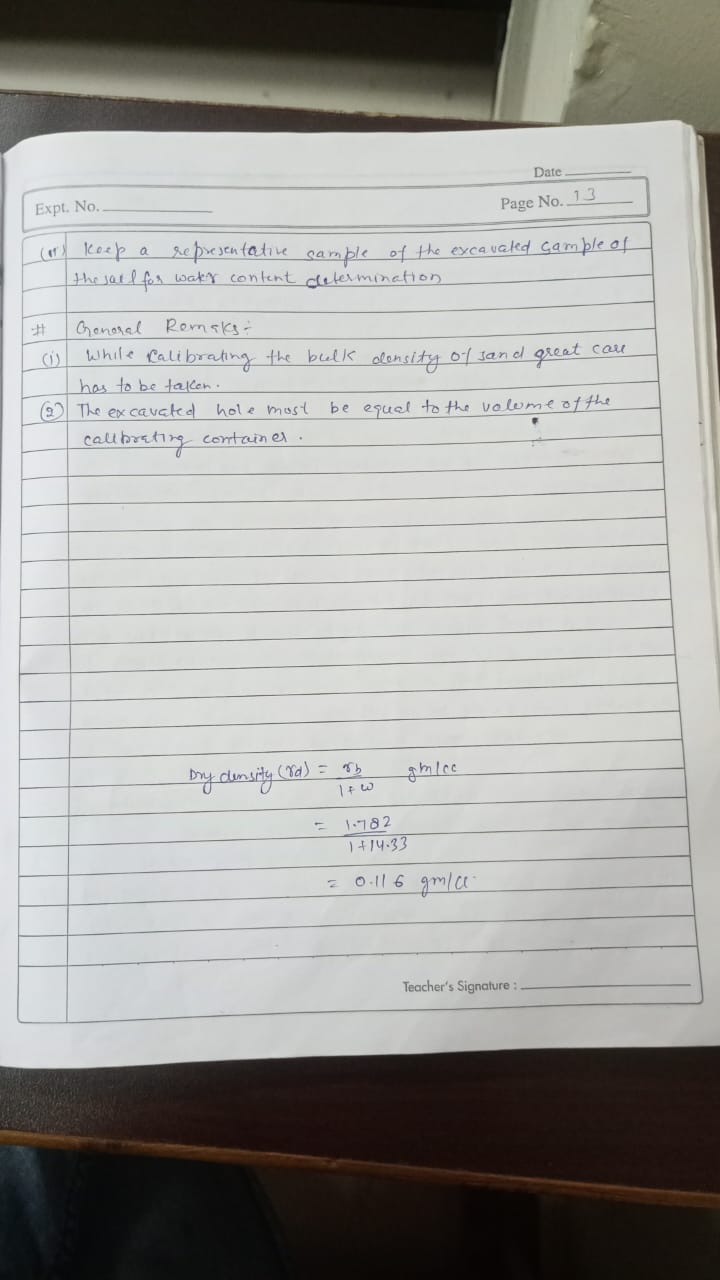 Date
Expt. No.
Page No. 13
Keep a representative sample of the excavated sample of
the soil for water content determination
# General Remarks:-
(i) While Calibrating the bulk density of sand great care
has to be taken.
(2) The excavated hole must be equal to the volume of the
calibrating container.
Dry density (γd) = γb / 1+w gm/cc
= 1.782 / 1+14.33
= 0.116 gm/cc.
Teacher's Signature :